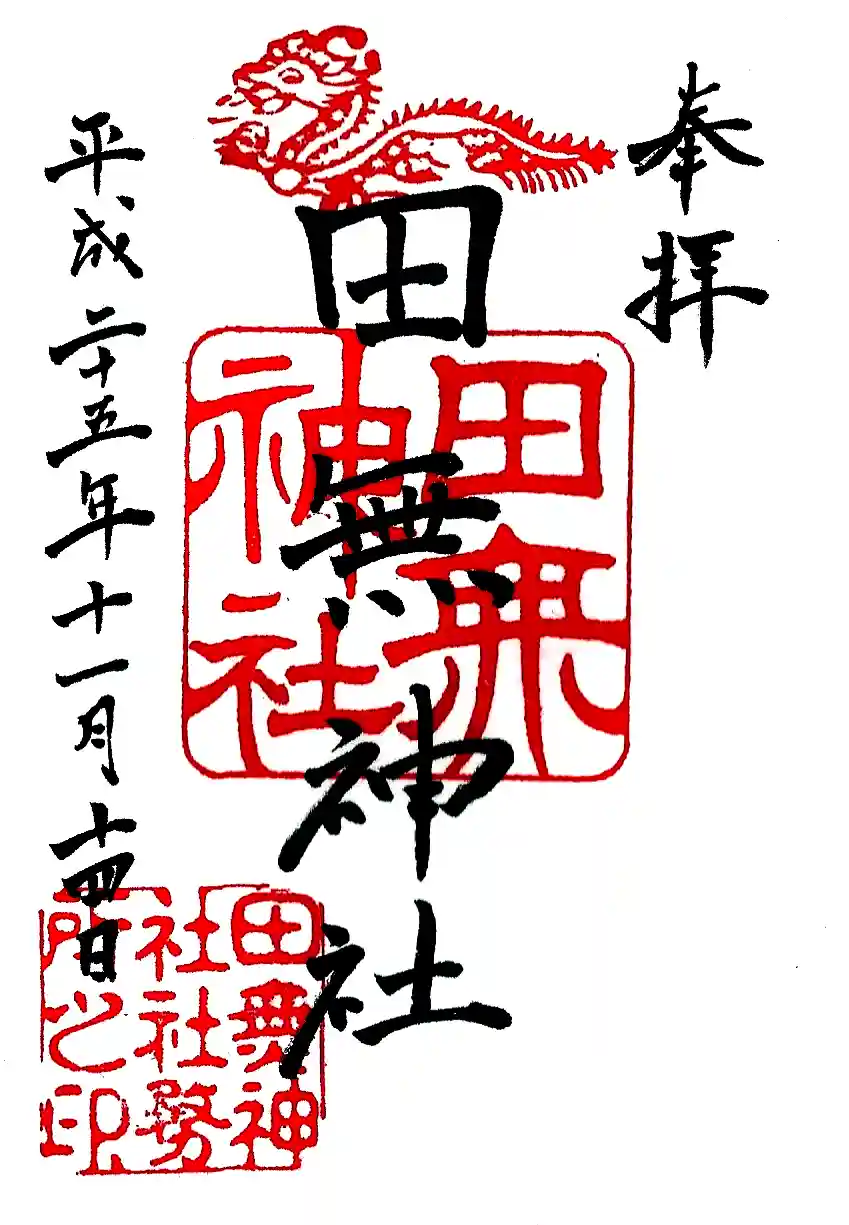 奉拝
田無神社
田無神社
平成二十五年十一月十四日
田無神社社務所之印